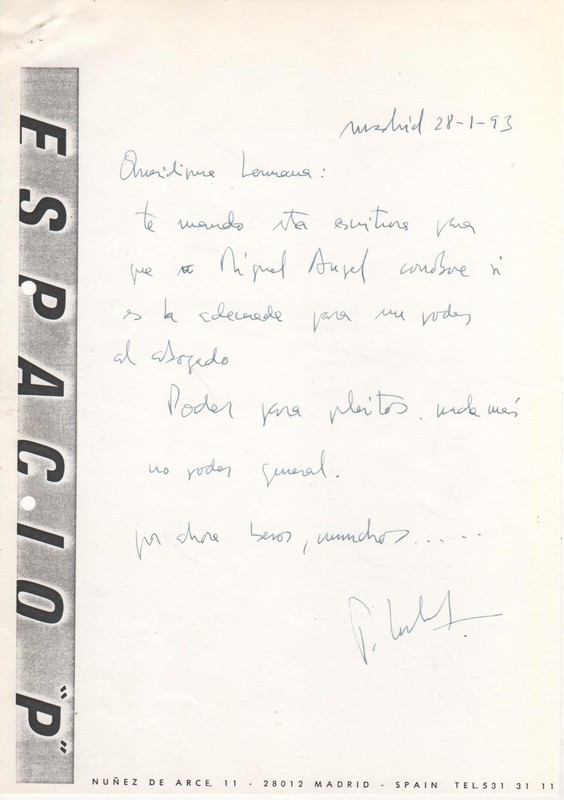 ESPACIO "P"
Madrid 28-1-93
Queridísima hermana:
te mando esta escritura para
que Miguel Angel corrobore si
es la adecuada para un poder
al abogado
Poder para pleitos. nada más
no poder general.
por ahora besos, muuchos.....
NUÑEZ DE ARCE, 11 - 28012 MADRID - SPAIN TEL.531 31 11